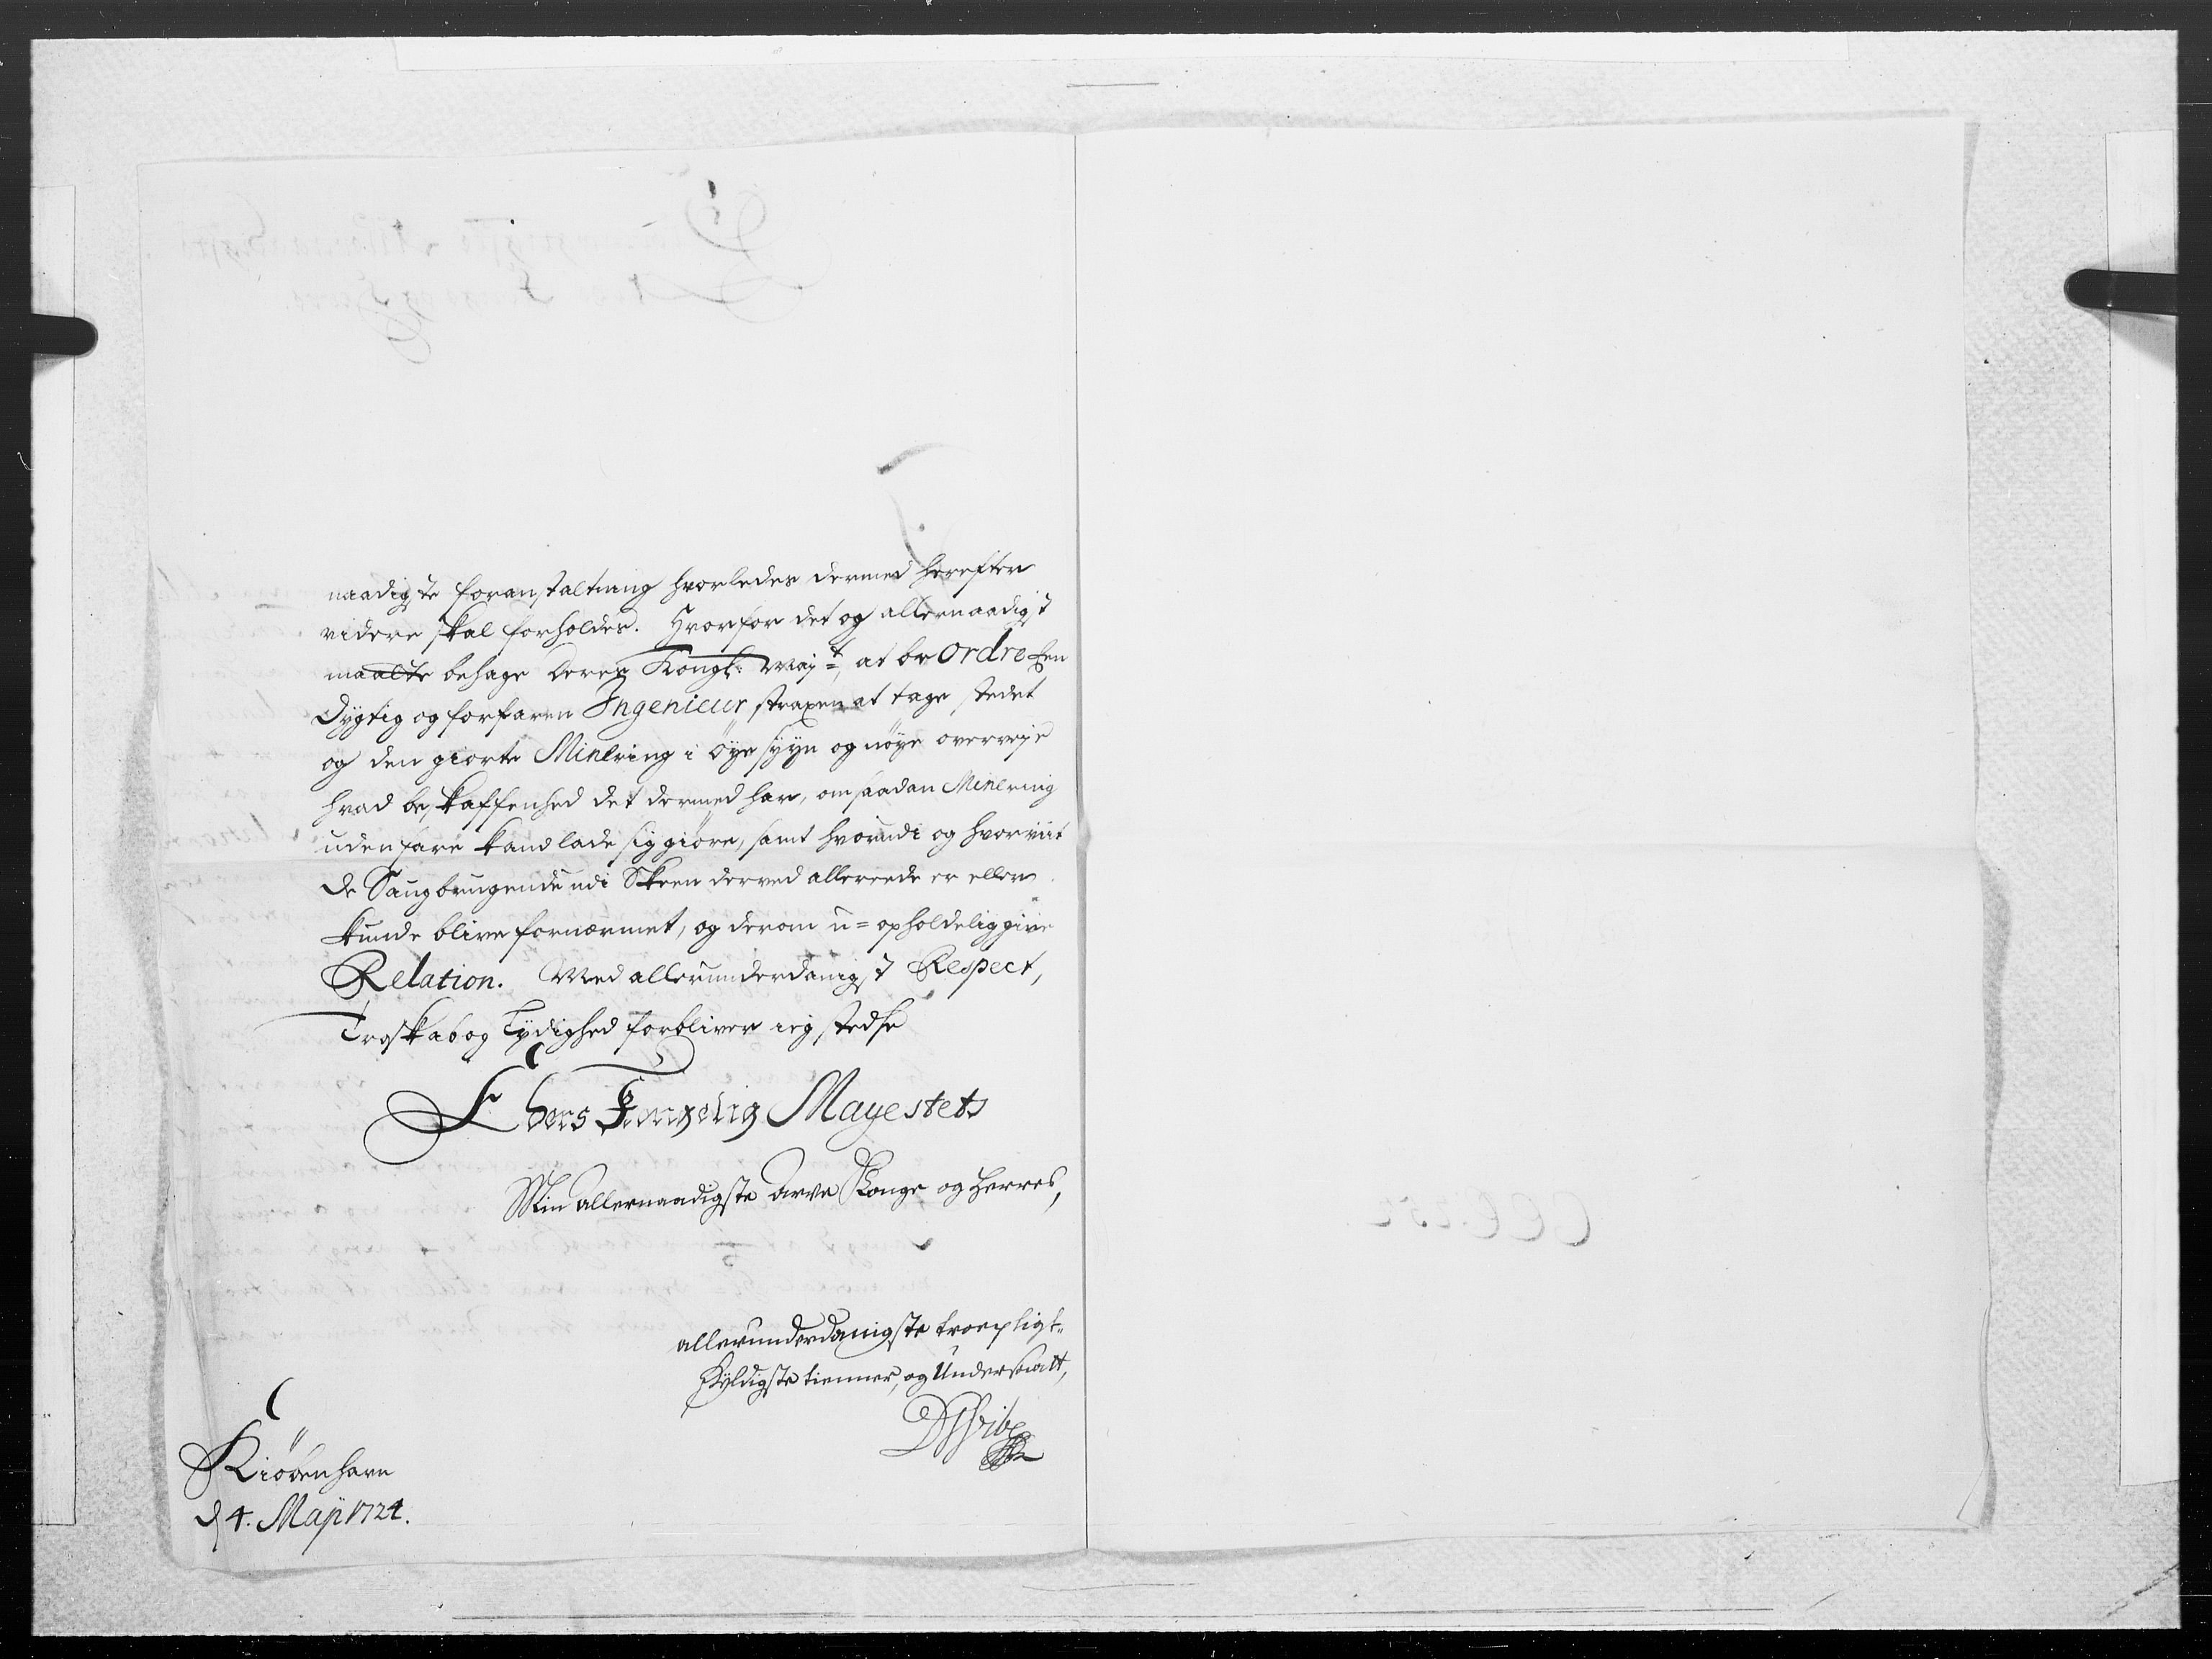 naadigste foranstaltning hvorledes dermed herefter
videre skal forholdes. Hvorfor det og allernaadigst
maatte behage Deres Kongl: Maj:t, at beordre Een
Dygtig og forfaren Ingenieur, straxen at tage stedet
og den giorte Minering i Øye syyn og nøye overveye
hvad beskaffenhed det dermed har, om saadan Minering
uden fare kand lade sig giøre, samt hvorudi og hvorviit
de Saugbrugende udi Skeen derved allereede er eller
kunde blive fornærmet, og derom u=opholdelig give
Relation. Med allerunderdanigst Respect,
Troskab og Lydighed forbliver ieg stedse
Eders Kongelig Mayestets
Min allernaadigste Arve Konge og Herres,
allerunderdanigste troepligt=
skyldigste tienner, og Undersaatt,
Kiøbenhavn
d 4. Maji 1724.